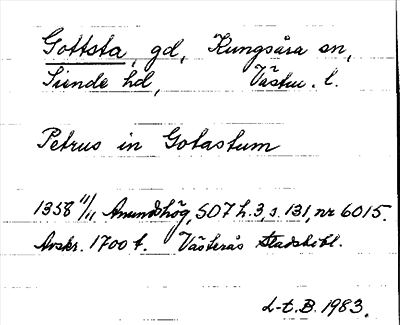 Gottsta, gd, Kungsåra sn,
Siende hd, Västm. l.
Petrus in Gotastum
1358 11/11 Amundshög, SD7 h. 3, s. 131, nr 6015.
Avskr. 1700 t. Västerås Stadsbibl.
L-t. B. 1983.